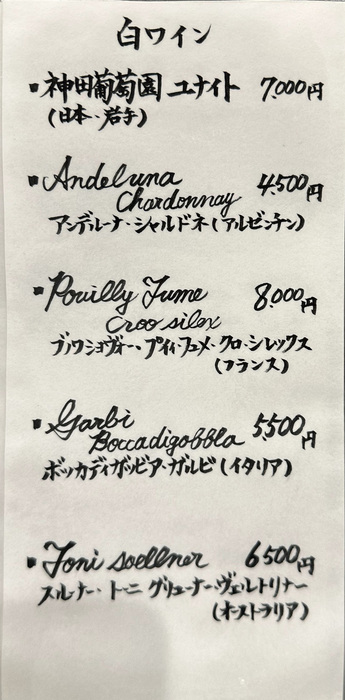 白ワイン
■神田葡萄園 ユナイト 7,000円
(日本・岩手)
■Andeluna 4,500円
Chardonnay
アンデルーナ・シャルドネ(アルゼンチン)
■Pouilly Fume 8,000円
Croo silex
ブノワショヴォー、プイィ・フュメ・クロ・シレックス
(フランス)
■Garbi 5,500円
Boccadigabbla
ボッカディガッビア・ガルビ(イタリア)
■Toni soellner 6500円
スルナー・トーニ グリューナーヴェルトリナー
(オーストラリア)